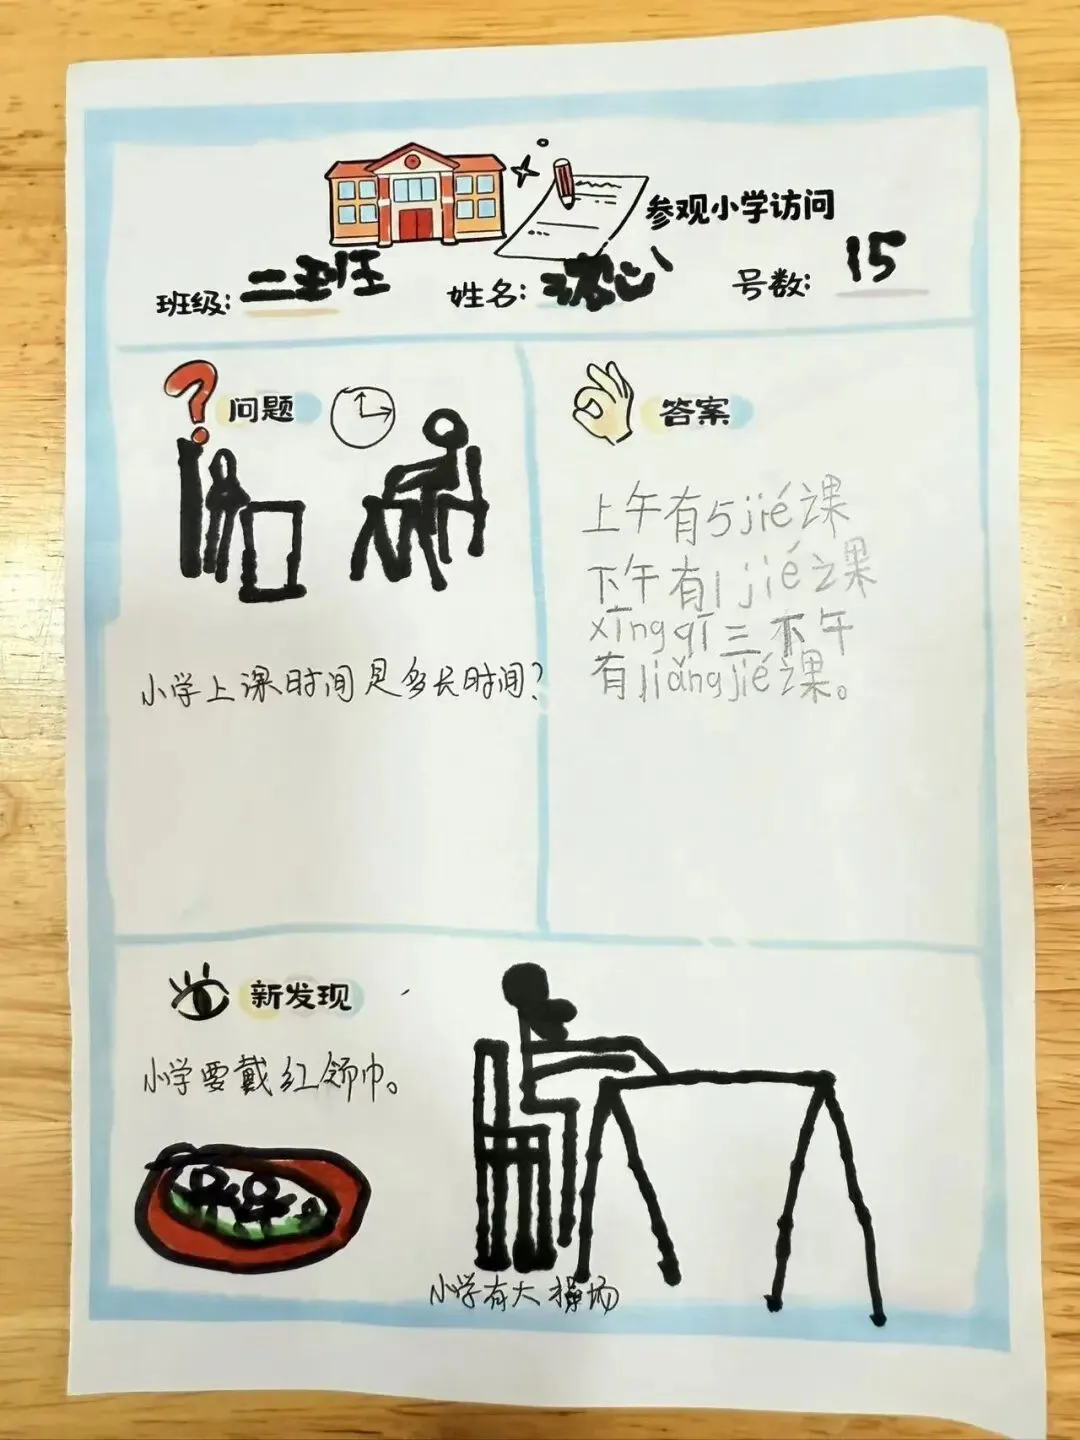 参观小学访问
班级: 二班 姓名: 号数: 15
? 问题
答案
上午有5jié课
下午有1jié课
xīngqī三下午
有liǎngjié课。
小学上课时间是多长时间?
新发现
小学要戴红领巾。
小学有大操场